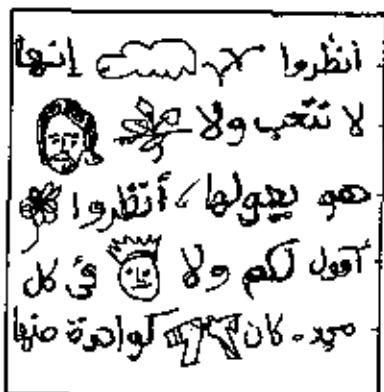 أنظروا إنها
لا تتعب ولا
هو يقولها، أنظروا
أقول لكم ولا في كل
مجد. كان كواحدة منها